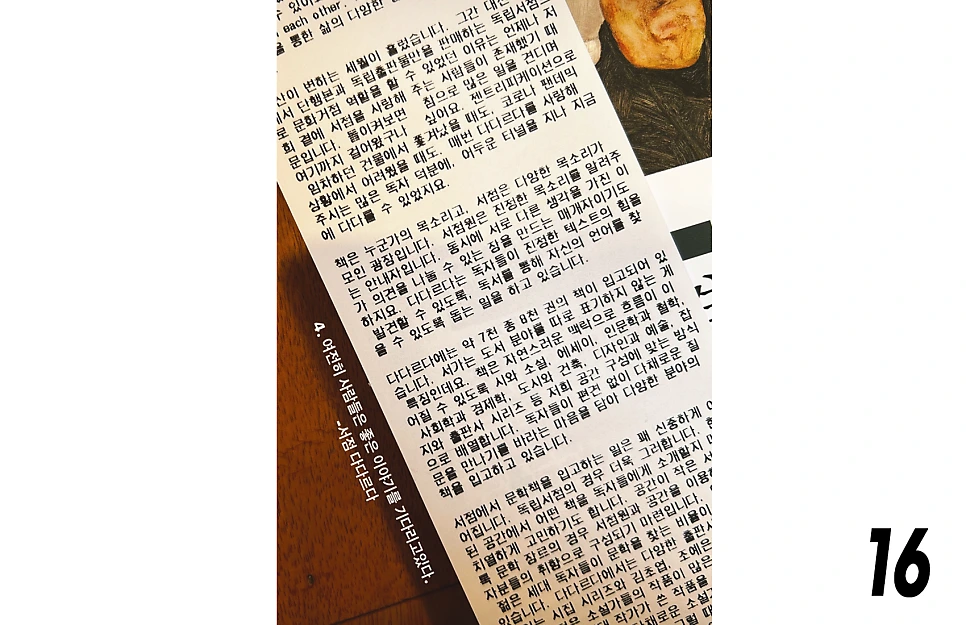 each other.
통한 삶의 다양한
변하는 세월이 흘렀습니다. 그간
단행본과 독립출판물만을 판매하는 독립서점으
로 문화거점 역할을 할 수 있었던 이유는 언제나 저
희 곁에 서점을 사랑해 주는 사람들이 존재했기 때
문입니다. 돌이켜보면 참으로 많은 일을 견디며
여기까지 걸어왔구나 싶어요. 젠트리피케이션으로
임차하던 건물에서 쫓겨났을 때도, 코로나 팬데믹
상황에서 어려웠을 때도. 매번 다다르다를 사랑해
주시는 많은 독자 덕분에, 어두운 터널을 지나 지금
에 다다를 수 있었지요.
책은 누군가의 목소리고, 서점은 다양한 목소리가
모인 광장입니다. 서점원은 진정한 목소리를 알려주
는 안내자입니다. 동시에 서로 다른 생각을 가진 이
가 의견을 나눌 수 있는 장을 만드는 매개자이기도
하지요. 다다르다는 독자들이 진정한 텍스트의 힘을
발견할 수 있도록, 독서를 통해 자신의 언어를 찾
을 수 있도록 돕는 일을 하고 있습니다.
다다르다에는 약 7천 종 8천 권의 책이 입고되어 있
습니다. 서가는 도서 분야를 따로 표기하지 않는 게
특징인데요. 책은 자연스러운 맥락으로 흐름이 이
어질 수 있도록 시와 소설, 에세이, 인문학과 철학,
사회학과 경제학, 도시와 건축, 디자인과 예술, 잡
지와 출판사 시리즈 등 저희 공간 구성에 맞는 방식
으로 배열합니다. 독자들이 편견 없이 다채로운 질
문을 만나기를 바라는 마음을 담아 다양한 분야의
책을 입고하고 있습니다.
서점에서 문학책을 입고하는 일은 꽤 신중하게
어집니다. 독립서점의 경우 더욱 그러합니다.
된 공간에서 어떤 책을 독자들에게 소개할지
치열하게 고민하기도 합니다. 공간이 작은
록 문학 장르의 경우 서점원과 공간을 이용
자분들의 취향으로 구성되기 마련입니다.
젊은 세대 독자들이 문학을 찾는 비율이
있습니다. 다다르다에서는 다양한 출판사
시집 시리즈와 김초엽, 조예은
소설가들의 작품이 많은
작가가 쓴 작품을
다채로운 소설
4. 여전히 사람들은 좋은 이야기를 기다리고있다.
-서점 다다르다
16